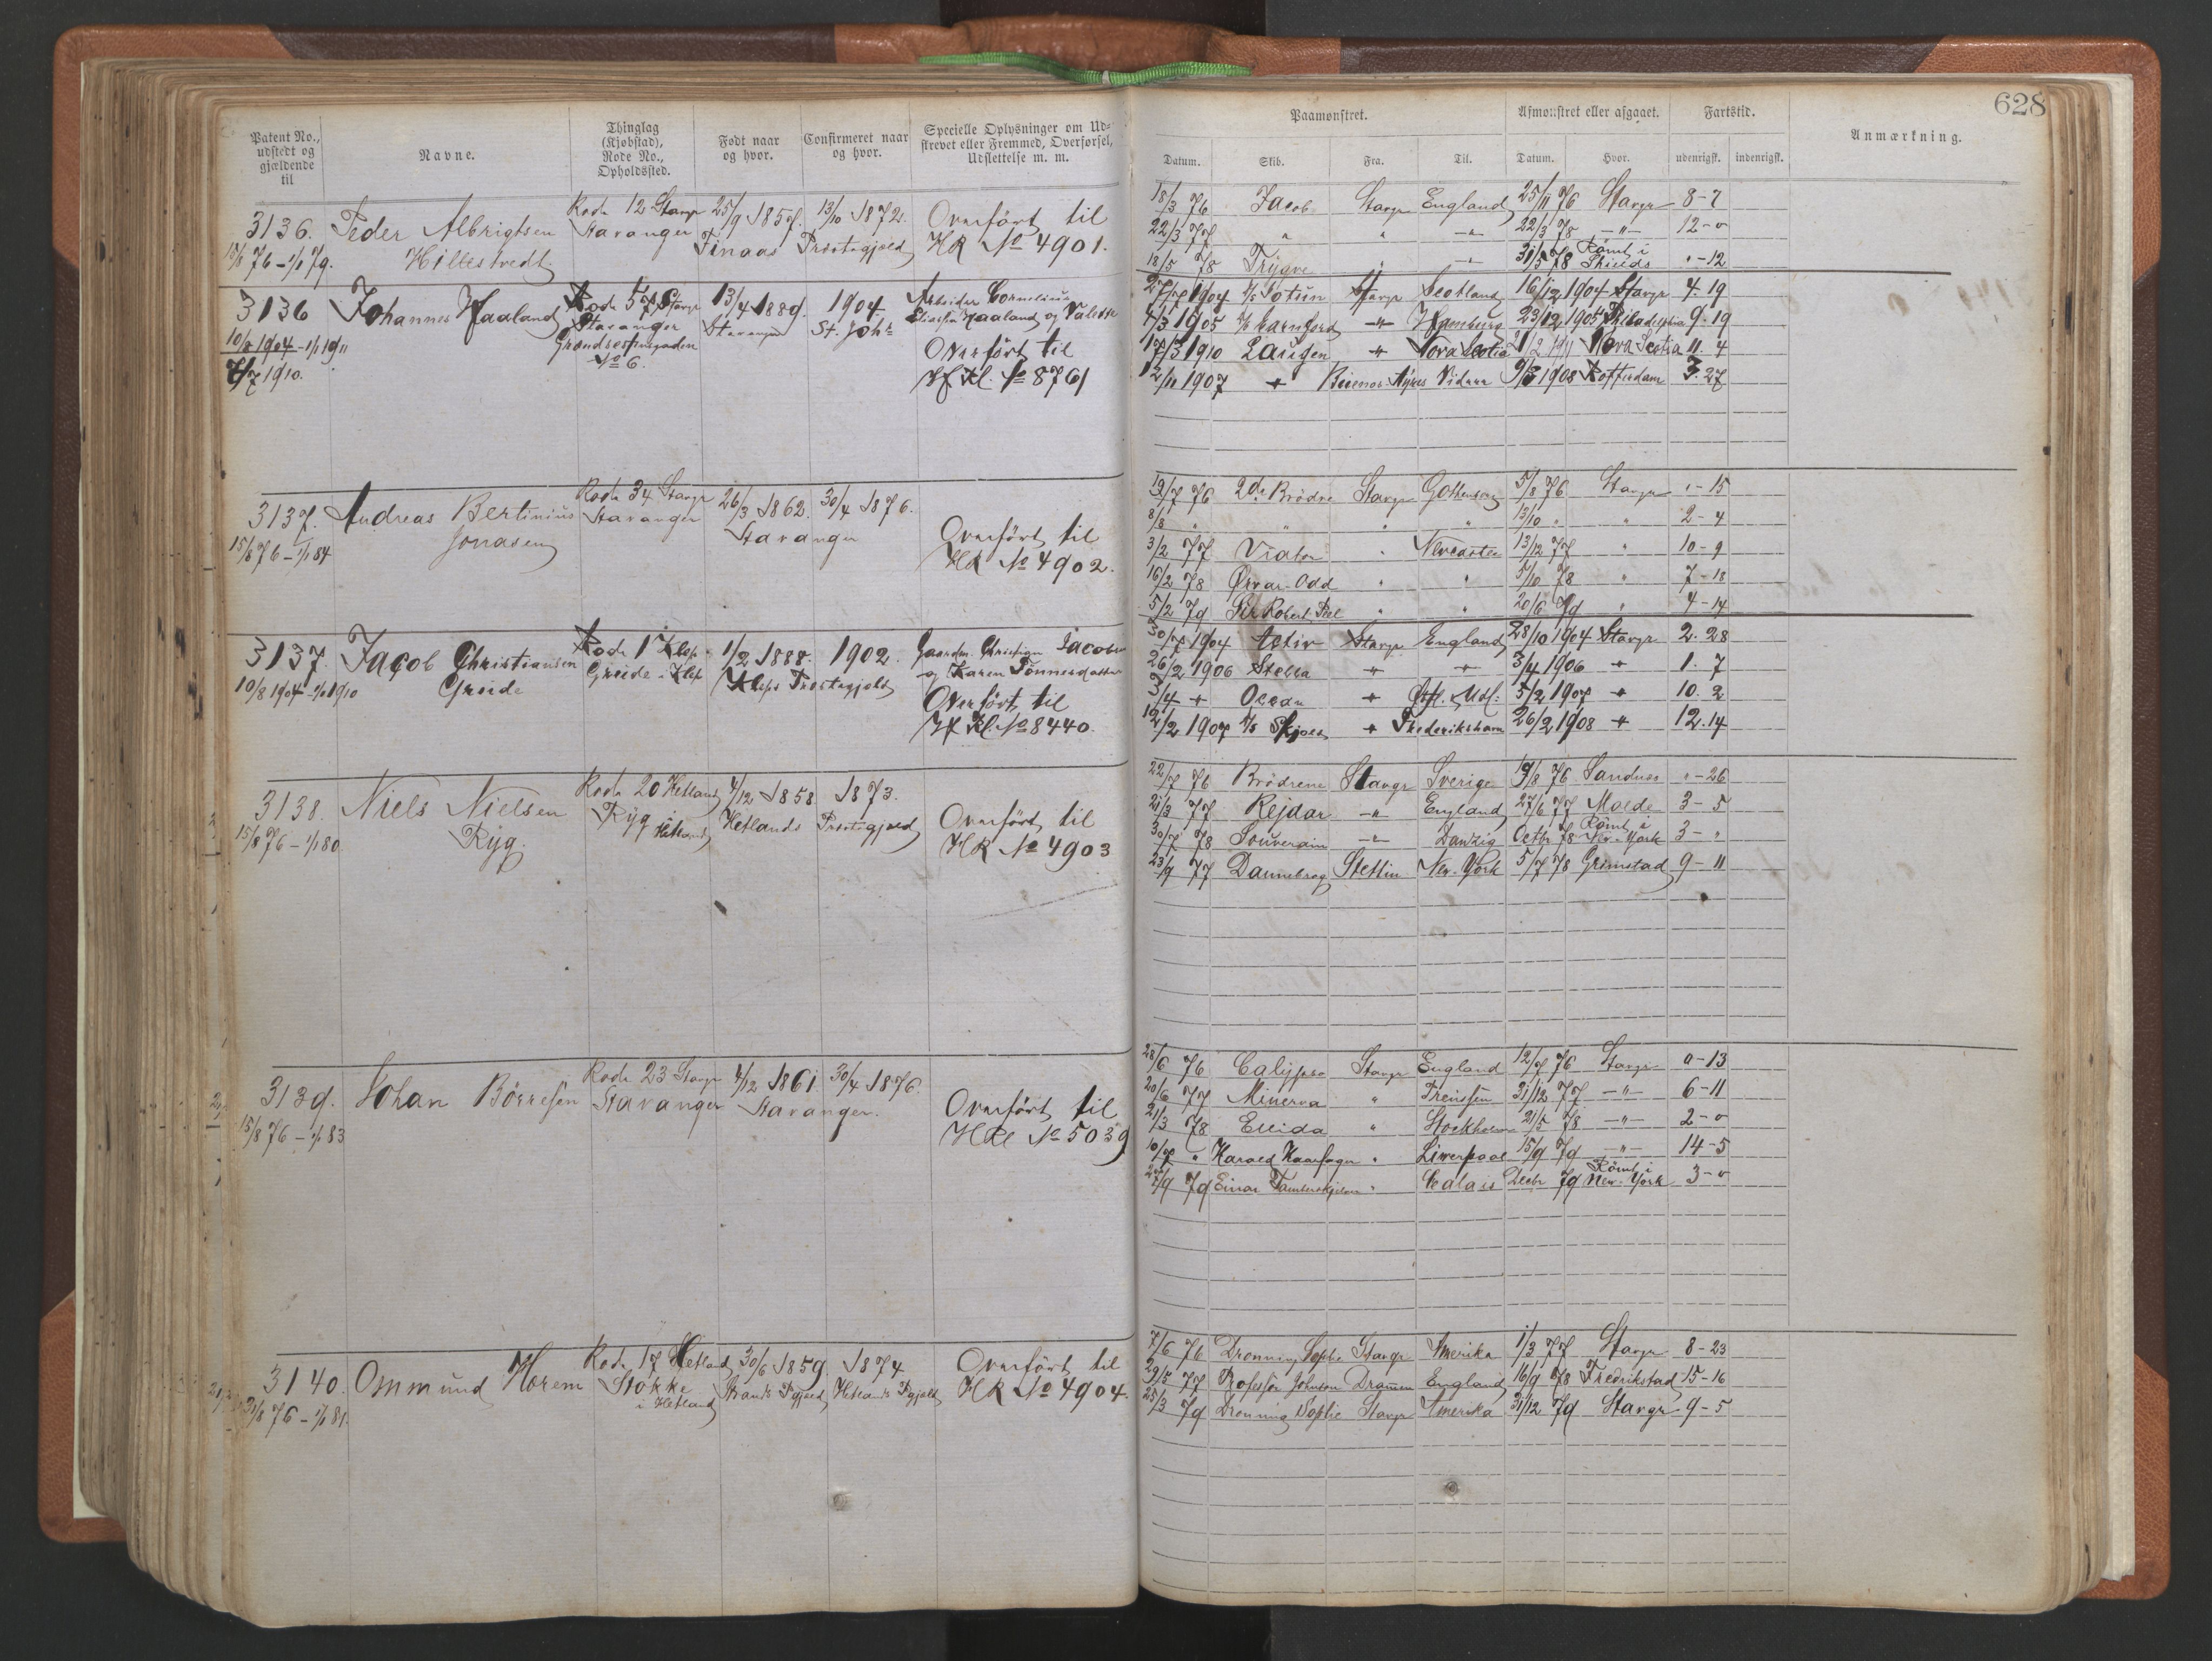 628
Patent No., udstedt og gjældende til
Navne.
Thinglag (Kjøbstad), Rode No., Opholdssted.
Født naar og hvor.
Confirmeret naar og hvor.
Specielle Oplysninger om Udskrevet eller Fremmed, Overførsel, Udslettelse m. m.
Paamønstret.
Afmønstret eller afgaaet.
Fartstid.
Anmærkning.
Datum. Skib. Fra. Til. Datum. Hvor. udenrigsk. indenrigsk.
3136. Peder Albrigtsen Rode 12 Stavgr 25/9 1857. 13/10 1872. Overført til
15/8 76 - 1/1 79. Hillestvedt Stavanger Finaas Præstegjæld HR No 4901.
18/3 76 Jacob Stavgr England 25/11 76 Stavgr 8-7
22/3 77 " " -"- 22/3 78 -"- 12-0
18/5 78 Trygve " -"- 31/5 78 Rømt i Shields "-12
3136 Johannes Haaland Rode 57 Stavgr 13/4 1889. 1904 Arbeider Cornelius
10/8 1904 - 1/1 1911 Stavanger Stavanger St. Johs Haaland og
7/7 1910. No 6. Overført til
H Kl. No 8761
27/7 1904 Stavgr Scotland 16/12 1904 Stavgr 4.19
4/3 1905 -"- Hamburg 23/12 1905 Philadelphia 9.19
17/3 1910 Laugen " Nova Scotia Nova Scotia 11. 4
12/11 1907 " Buenos Ayres 9/3 1908 Rotterdam 3.27
3137. Andreas Bertinius Rode 34 Stavgr 26/3 1862. 30/4 1876. Overført til
15/8 76 - 1/1 84 Jonasen Stavanger Stavanger HR No 4902.
19/7 76 2de Brødre Stavgr Gottenborg 5/8 76 Stavgr "-15
8/8 " " " " 13/10 " " 2-4
3/2 77 Viator " Newcastle 13/12 77 " 10-9
16/2 78 Ørvar-Odd " " 5/10 78 " 7-18
5/2 79 Sir Robert Peel " " 20/6 79 " 4-14
3137. Jacob Christiansen Rode 17 Klep 1/2 1888. 1902. Gaardm. Christian Jacobsen
10/8 1904 - 1/1 1910 Grude Grude - Klep Kleps Præstegjeld og Karen Tønnesdatter
Overført til
H Kl. No 8440.
30/7 1904 Activ Stavgr England 28/10 1904 Stavgr 2. 28
26/2 1906 Stella " " 3/4 1906 " 1. 7
3/4 " Ocean " 5/2 1907 " 10. 2
12/2 1907 Skjold " Frederikshavn 26/2 1908 " 12.14
3138. Niels Nielsen Rode 20 Hetland 4/12 1858 1873. Overført til
15/8 76 - 1/1 80. Ryg. Ryg Hetland Hetlands Præstegjæld HR No 4903
22/7 76 Brødrene Stavgr Sverige 19/8 76 Sandnes "-26
21/3 77 Rejdar -"- England 27/6 77 Molde 3-5
30/7 78 Souverain -"- Danzig Octbr 78 Rømt i New-York 3-"
23/9 77 Dannebrog Stettin New-York 5/7 78 Grimstad 9-11
3139. Johan Børresen Rode 23 Stavgr 4/12 1861 30/4 1876 Overført til
15/8 76 - 1/1 83 Stavanger Stavanger. HRl No 5039
28/6 76 Calypso Stavgr England 12/7 76 Stavgr 0-13
20/6 77 Minerva " Preussen 31/12 77 -"- 6-11
21/3 78 Ellida " Stockholm 21/5 78 -"- 2-0
10/7 " Harald Haarfager " Liverpool 15/9 79 -"- 14-5
27/9 79 Einar Tambarskjelver " Calais Decbr 79 Rømt i New-York 3-0
3140. Ommund Horem Rode 17 Hetland 30/6 1859. 1874 Overført til
31/8 76 - 1/1 81. Stokke i Hetland Strands Pgjæld Hetlands Pgjæld HR No 4904.
7/6 76 Dronning Sophie Stavgr Amerika 1/3 77 Stavgr 8-23
29/5 77 Professor Johnson Drammen England 16/9 78 Fredrikstad 15-16
25/3 79 Dronning Sophie Stavgr Amerika 31/12 79 Stavgr 9-5